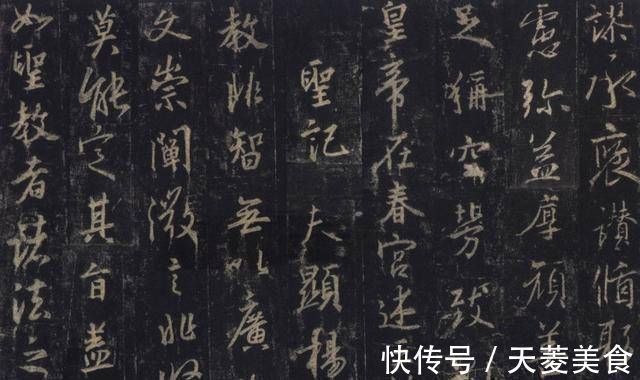 謬承褒讚循躬
慮弥益厚顔善
足稱空勞致
皇帝在春宮述
聖記 夫顯揚
教非智無以廣
文崇闡微言非賢
莫能定其旨盖
如聖教者諸法之
快传号 / 天菱美食